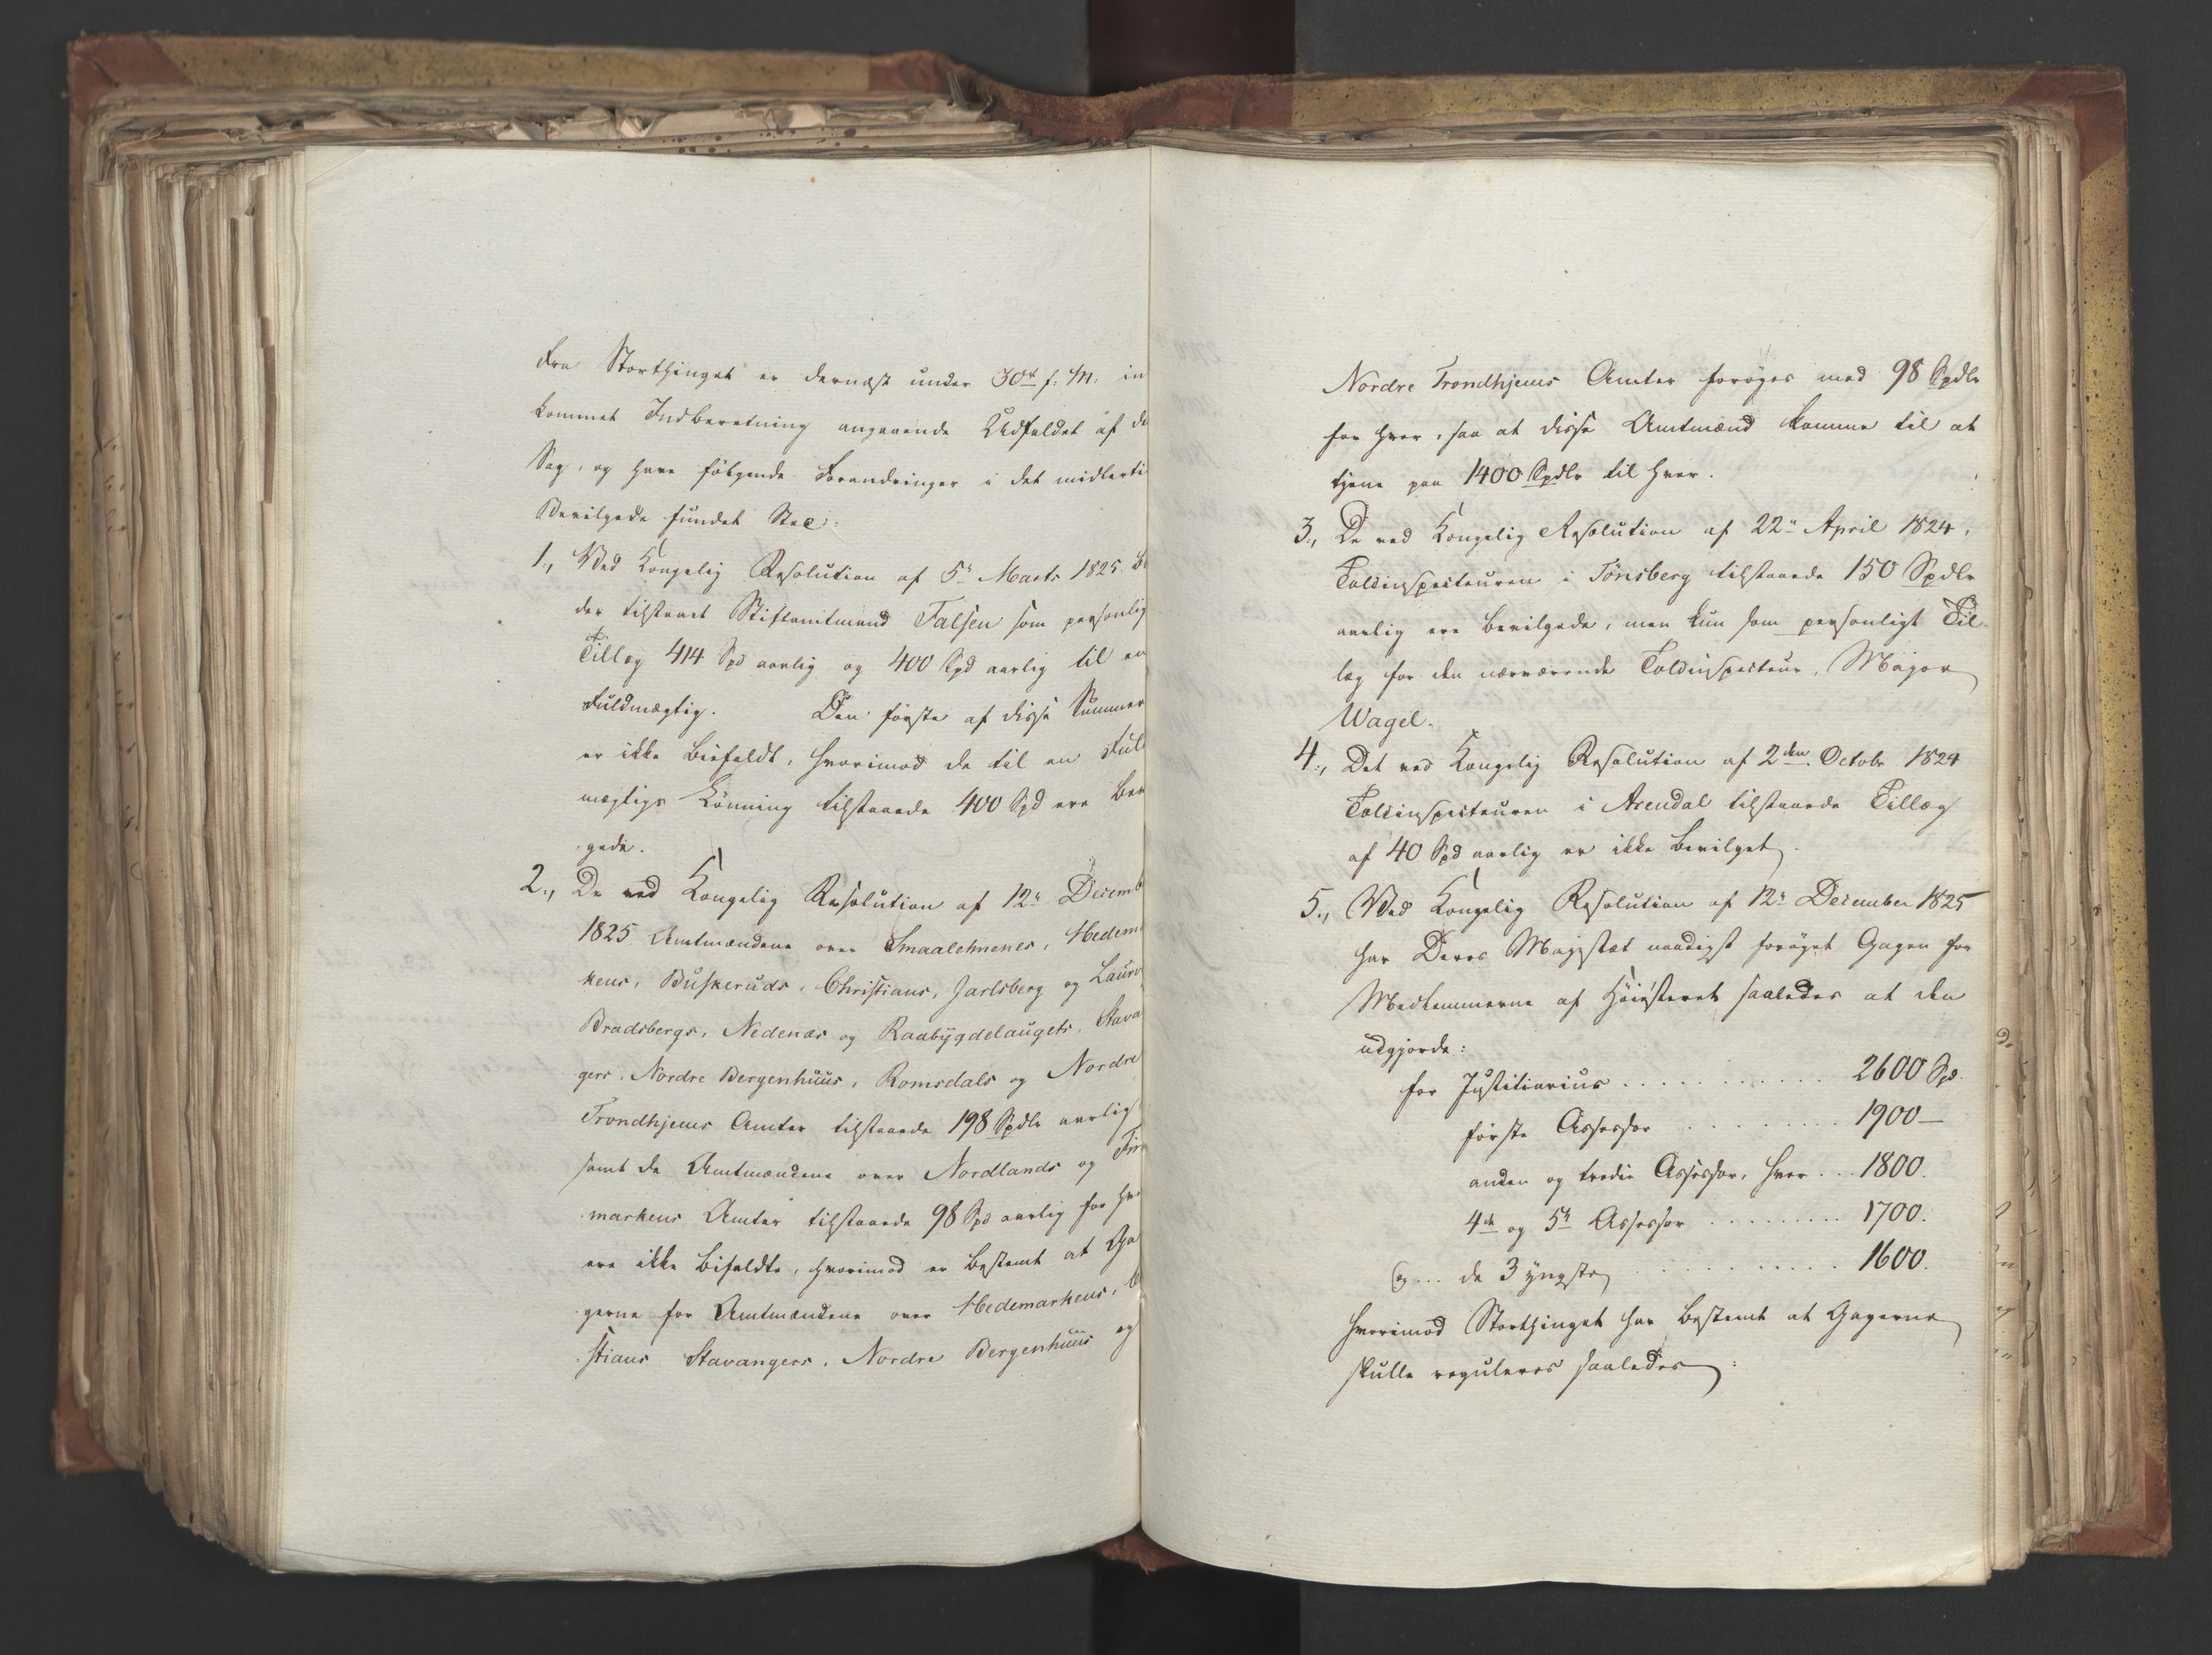 Fra Storthinget er dernæst under 30te f: M: in
kommet Indberetning angaaende Udfaldet af de
Sag, og have følgende Forandringer i det midlerti
Bevilgede fundet Sted:
1., Ved Kongelig Resolution af 5te Marts 1825 bl
der tilstaaet Stiftamtmand Falsen som personlig
Tillæg 414 Spd aarlig og 400 Spd aarlig til en
Fuldmægtig. Den første af disse Summer
er ikke bifaldt, hvorimod de til en Ful
mægtigs Lønning tilstaaede 400 Spd ere bev
gede.
2., De ved Kongelig Resolution af 12te Decemb
1825 Amtmændene over Smaalehnenes, Hedem
kens, Buskeruds, Christians, Jarlsberg og Laurv
Bradsbergs, Nedenæs og Raabygdelaugets, Stava
gers, Nordre Bergenhuus, Romsdals og Nordre
Trondhjems Amter tilstaaede 198 Spdlr aarlig
samt de Amtmændene over Nordlands og Fin
markens Amter tilstaaede 98 Spd aarlig for hv
ere ikke bifaldte, hvorimod er bestemt at Ga
gerne for Amtmændene over Hedemarkens,
stians Stavangers, Nordre Bergenhuus og
Nordre Trondhjems Amter forøges med 98 Spdlr
for hver, saa at disse Amtmænd komme til at
tjene paa 1400 Spdlr til hver.
3., De ved Kongelig Resolution af 22de April 1824,
Toldinspecteuren i Tönsberg tilstaaede 150 Spdlr
aarlig ere bevilgede, men kun som personligt Til-
læg for den nærværende Toldinspecteur, Major
Wagel.
4., Det ved Kongelig Resolution af 2den Octobr 1824
Toldinspecteuren i Arendal tilstaaede Tillæg
af 40 Spd aarlig er ikke bevilget.
5., Ved Kongelig Resolution af 12te December 1825
har Deres Majestæt naadigst forøget Gagen for
Medlemmerne af Høiesteret saaledes at den
udgjorde:
for Justitiarius . . . . . . . . . . . 2600 Spd.
første Assessor . . . . . . . . 1900 —
anden og tredie Assessor, hver . . . 1800.
4de og 5te Assessor . . . . . . . . . 1700.
og . . . de 3 yngste . . . . . . . . . . 1600.
hvorimod Storthinget har bestemt at Gagerne
skulle reguleres saaledes: